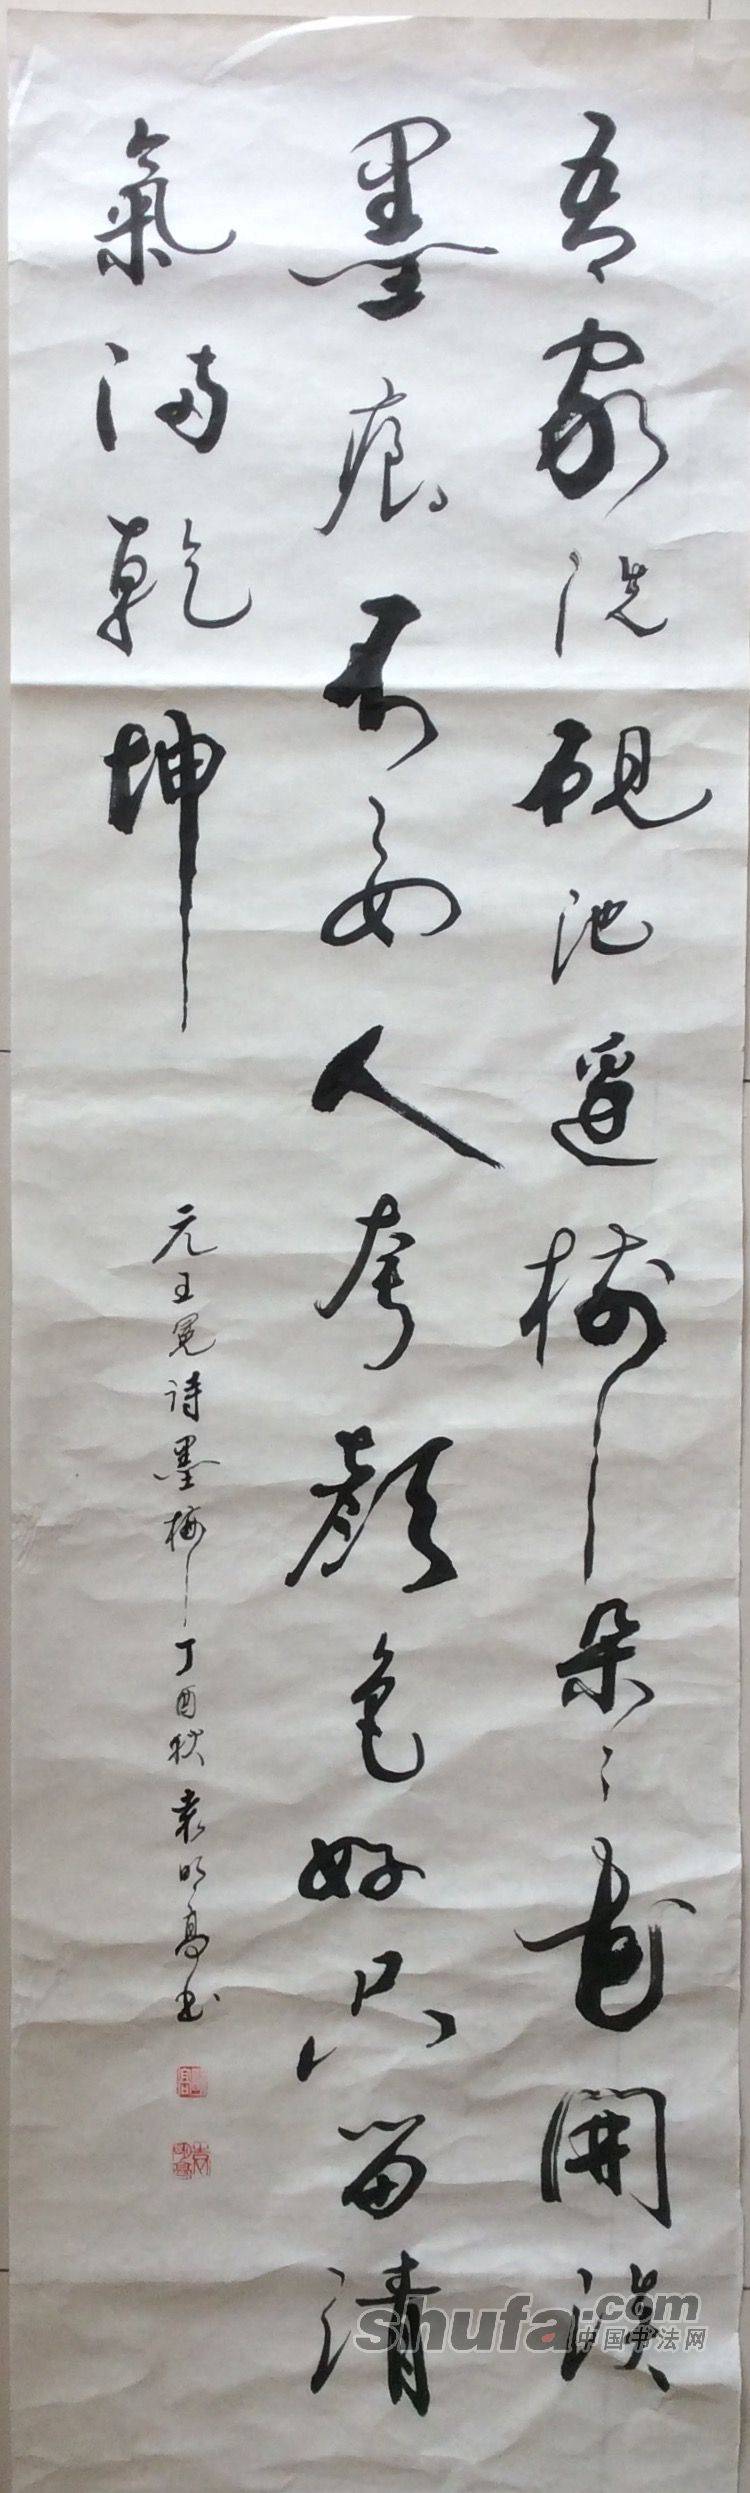 吾家洗硯池邊樹朵々花開淡
墨痕不要人夸顏色好只留清
氣滿乾坤
元王冕诗墨梅丁酉秋袁明高书
shufa.com
中国书法网